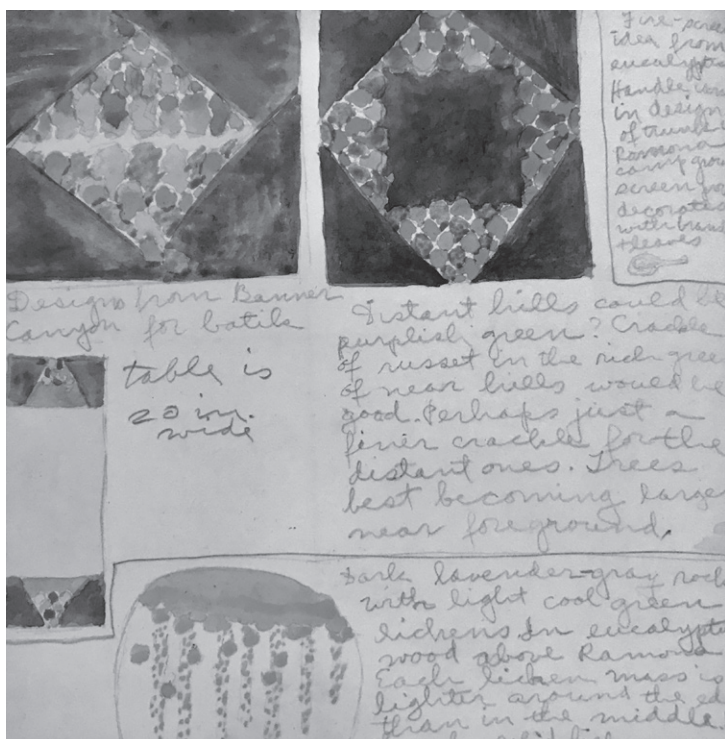 Fire-scre
idea from
eucalypt
Handle
in design
of trunk
Ramona
camp grou
screen
decorate
with bran
+ leaves
Designs from Banner
Canyon for batik
table is
20 in.
wide
Distant hills could be
purplish green? Crackle
of russet in the rich gree
of near hills would be
good. Perhaps just a
finer crackle for the
distant ones. Trees
best becoming large
near foreground.
Dark lavender-gray rock
with light cool green
lichens In eucalypt
wood above Ramona
Each lichen mass is
lighter around the ed
than in the middle.